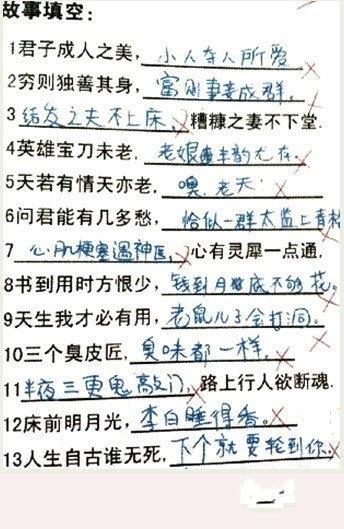 故事填空：
1君子成人之美，小人夺人所爱
2穷则独善其身，富则妻妾成群。
3结发之夫不上床，糟糠之妻不下堂.
4英雄宝刀未老，老娘丰韵尤存.
5天若有情天亦老，噢，老天
6问君能有几多愁，恰似一群太监上青
7心肌梗塞遇神医，心有灵犀一点通.
8书到用时方恨少，钱到月底不够花。
9天生我才必有用，老鼠儿子会打洞.
10三个臭皮匠，臭味都一样。
11半夜三更鬼敲门，路上行人欲断魂.
12床前明月光，李白睡得香。
13人生自古谁无死，下个就要轮到你.